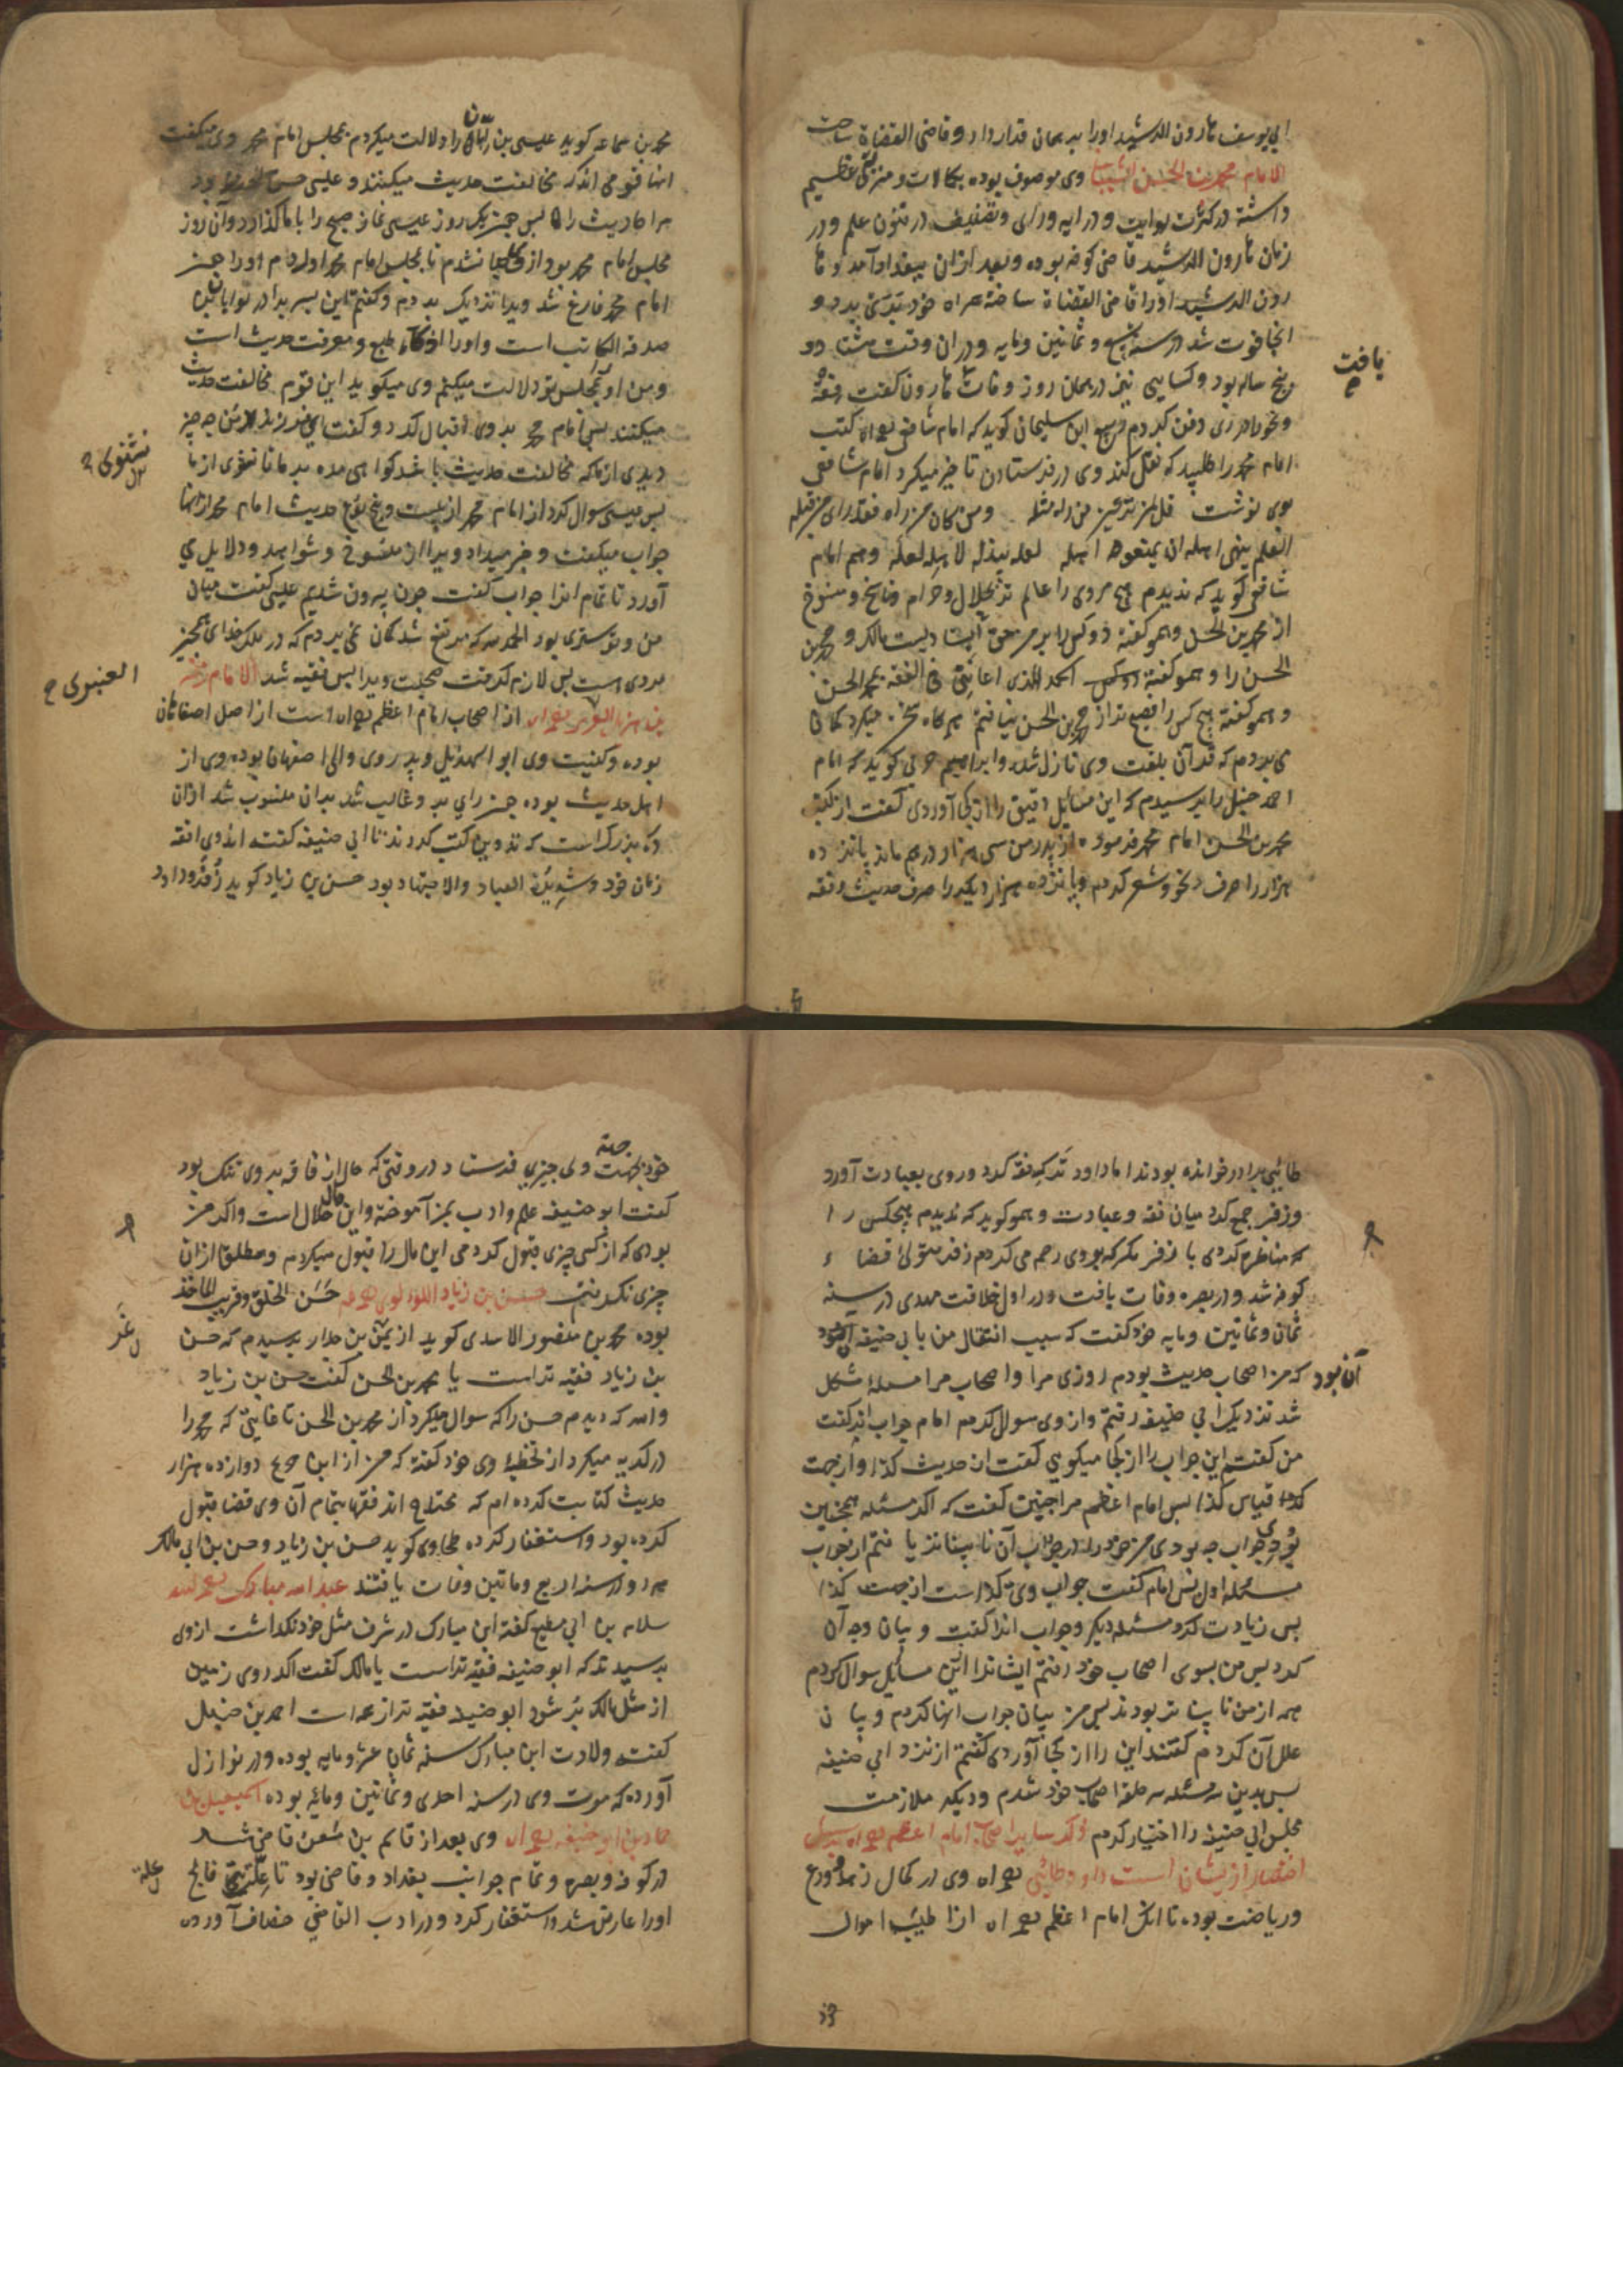 ابی یوسف هارون الرشید اورا بر همان قرار دارد و قاضی القضاة ساخت
الامام محمد بن الحسن الشیبانی وی موصوف بوده بکمالات و منزلتی عظیم
داشته در کثرت روایت و درایه ورای و تصنیف در فنون علم و در
زمان هارون الرشید قاضی کوفه بوده و بعد ازان ببغداد آمد و ها
رون الرشید اورا قاضی القضاة ساخته همراه خود بری برد و
انجا فوت شد در سنه تسع و ثمانین و مایه و دران وقت هشتا دو
پنج ساله بود و کسایی نیز در همان روز وفات هارون گفت فقه
یافت
و نحو را در ری دفن کردم ربیع ابن سلیمان کوید که امام شافعی کتب
امام محمد را طلبید که نقل کند وی در فرستادن تاخیر میکرد امام شافعی
بوی نوشت قل لمن لم تر عین من راه مثله ومن کان من راه فقد رای من قبله
العلم ینهی اهله ان یمنعوه اهله لعله یبذله لاهله لعله وهم امام
شافعی کوید که ندیدم هیچ مردی را عالم تر بحلال و حرام و ناسخ و منسوخ
از محمد بن الحسن وهمو گفته دو کس را بر من حق است مالک و محمد بن
الحسن را و همو گفته الحمد لله الذی اعاننی فی الفقه بمحمد الحسن
و همو گفته هیچ کس را فصیح تر از محمد بن الحسن نیافتم هرگاه سخن میکرد گمان
می بردم که قرآن بلغت وی نازل شده و ابراهیم حربی کوید که امام
احمد حنبل را پرسیدم که این مسایل دقیق را از کجا آوردی گفت از کتب
محمد بن الحسن امام محمد فرموده از پدر من سی هزار درهم ماند پانزده
هزار را صرف نحو و شعر کردم و پانزده هزار دیگر را صرف حدیث و فقه
محمد بن سماعه کوید عیسی بن ابان را دلالت میکردم بمجلس امام محمد وی میگفت
اینها قومی اند که مخالفت حدیث میکنند و عیسی حسن الحفظ بود
مر احادیث را پس یک روز عیسی نماز صبح را با ما گذارد و آن روز
مجلس امام محمد بود از وی جدا نشدم تا بمجلس امام محمد اوردم اورا چون
امام محمد فارغ شد ویرا نزدیک بردم و گفتم این پسر برادر تو ابان بن
صدقه الکاتب است و اورا ذکاء طبع و معرفت حدیث است
و من او بمجلس تو دلالت میکنم وی میکوید این قوم مخالفت حدیث
میکنند پس امام محمد بر وی اقبال کرد و گفت ای فرزند من چه چیز
دیدی از ما که مخالفت حدیث باشد گواهی مده بر ما تا نشنوی از ما
نشنوی
پس عیسی سوال کرد از امام محمد از بیست و پنج نوع حدیث امام محمد از انها
جواب میگفت و خبر میداد ویرا از منسوخ و شواهد و دلایل می
آورد تا تمام انرا جواب گفت چون بیرون شدیم عیسی گفت میان
من و نور ستری بود الحمد لله که مرتفع شد گمان نمی بردم که در ملک خدای همچنین
مردی است پس لازم گرفت صحبت ویرا پس فقیه شد الامام زفر
بن هذیل العنبری از اصحاب امام اعظم است از اصل اصفاهان
العنبری
بوده و کنیت وی ابو الهذیل و پدر وی والی اصفهان بوده وی از
اهل حدیث بوده چون رای بر وی غالب شد بدان منسوب شد ازان
ده بزرگ است که تدوین کتب کردند تا ابی حنیفه گفته او وی افقه
زمان خود و شدید العباد والاجتهاد بود حسن بن زیاد کوید زفر و داود
طایی برادر خوانده بودند اما داود ترک فقه کرد و روی بعبادت آورد
و زفر جمع کرد میان فقه و عبادت و همو کوید که ندیدم هیچکس را
که مناظره کردی با زفر مگر که بر وی رحم می کردم زفر متولی قضاء
کوفه شد و در بصره وفات یافت و در اول خلافت مهدی در سنه
ثمان و ثمانین و مایه خود گفت که سبب انتقال من بابی حنیفه
آن بود که من از اصحاب حدیث بودم روزی مرا و اصحاب مرا مسئله مشکل
شد نزدیک ابی حنیفه رفتم و از وی سوال کردم امام جواب انرا گفت
من گفتم این جواب را از کجا میگویی گفت از حدیث کذا و از جهت
قیاس کذا پس امام اعظم مرا چنین گفت که اگر مسئله همچنین
بودی جواب چه بودی من خود را در جواب آن نابیناتر یافتم از جواب
مسئله اول پس امام گفت جواب وی کذاست از جهت کذا
پس زیادت کرد مسئله دیگر و جواب انرا گفت و بیان وجه آن
کرد پس من بسوی اصحاب خود رفتم ایشانرا ازین مسایل سوال کردم
همه از من نابیناتر بودند پس من بیان جواب انها کردم و بیان
علل آن کردم گفتند این را از کجا آوردی گفتم از نزد ابی حنیفه
پس بدین سه مسئله سر حلقه اصحاب خود شدم و دیگر ملازمت
مجلس ابی حنیفه را اختیار کردم ذکر سایر اصحاب امام اعظم بر سبیل
اختصار ازیشان است داود طایی وی در کمال زهد و ورع
و ریاضت بوده تا آنکه امام اعظم از طیب احوال
خود بجهت وی چیزی فرستاد در وقتی که حال از فاقه بر وی تنگ بود
گفت ابو حنیفه علم و ادب بمن آموخته و این مال حلال است و اگر من
بودی که از کسی چیزی قبول کردمی این مال را قبول میکردم و مطلق ازان
چیزی نگرفتم حسن بن زیاد اللؤلوی حسن الخلق و قریب الماخذ
بوده محمد بن منصور الاسدی کوید از بن پرسیدم که حسن
بن زیاد فقیه تر است یا محمد بن الحسن گفت حسن بن زیاد
والله که دیدم حسن را که سوال میکرد از محمد بن الحسن تا غایتی که محمد را
در گریه میکرد از تخطیه وی خود گفته که من از ابن جریج دوازده هزار
حدیث کتابت کرده ام که محتاج اند فقها بتمام آن وی قضا قبول
کرده بود و استغفار کرده طحاوی کوید حسن بن زیاد و حسن بن ابی مالک
هر دو در سنه اربع و ماتین وفات یافتند عبد الله مبارک رحمه الله
سلام بن ابی مطیع گفته ابن مبارک در شرف مثل خود نگذاشت از وی
پرسیدند که ابو حنیفه فقیه تر است یا مالک گفت اگر روی زمین
از مثل مالک پر شود ابو حنیفه فقیه تر از همه است احمد بن حنبل
گفته ولادت ابن مبارک سنه ثمان عشر و مایه بوده و در نوازل
آورده که موت وی در سنه احدی و ثمانین و مایه بوده اسمعیل بن
حماد بن ابو حنیفه وی بعد از قاسم بن معن قاضی شد
در کوفه و بصره و تمام جوانب بغداد و قاضی بود تا علت فالج
علة
اورا عارض شد و استغفار کرد و در ادب القاضی خصاف آورده